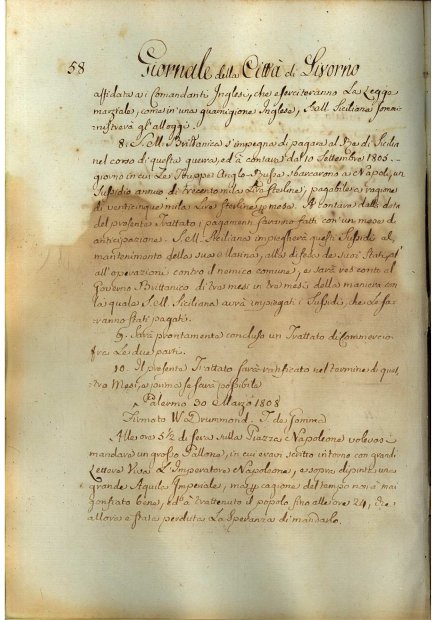 58 Giornale della Città di Livorno
affidata a i Comandanti Inglesi, che eserciteranno La Legge
marziale, come in una guarnigione Inglese, S.M. Siciliana som-
ministrerà gl'alloggi.
8. S.M. Brittanica s'impegna di pagare al Re di Sicilia
nel corso di questa guerra, ed a contare dal 10 Settembre 1805.
giorno in cui Le Truppe Anglo-Russe sbarcarono a Napoli, un
Sussidio annuo di trecento mila Lire Sterline, pagabile a ragione
di venticinque mila Lire Sterline p mese. A contare dalla data
del presente Trattato i pagamenti saranno fatti con un mese di
anticipazione. S.M. Siciliana impiegherà questi Sussidi al
mantenimento della sua Marina, alla difesa de suoi Stati, ed
all'operazioni contro il nemico comune, e sarà reso conto al
Governo Brittanico di tre mesi in tre mesi della maniera con
la quale S.M. Siciliana avrà impiegati i Sussidi, che Le sa-
ranno stati pagati.
9. Sarà prontamente concluso un Trattato di Commercio
fra Le due parti.
10. Il presente Trattato sarà ratificato nel termine di quat-
tro Mesi, e prima se sarà possibile
Palermo 30 Marzo 1808
Firmato W. Drummond - T. de Somma
Alle ore 5½ di sera sulla Piazza Napoleone volevasi
mandare un grosso Pallone, in cui eravi scritto intorno con grandi
Lettere Viva L'Imperatore Napoleone, e sopra dipinta una
grande Aquila Imperiale, ma p cagione del tempo non è mai
gonfiato bene, ed à trattenuto il popolo fino alle ore 24, che
allora è stata perduta La Speranza di mandarlo.